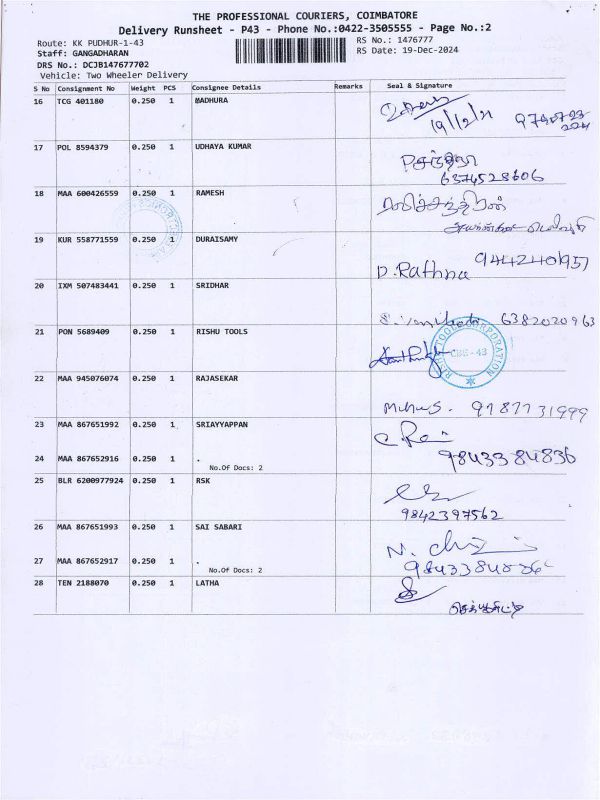 THE PROFESSIONAL COURIERS, COIMBATORE
Delivery Runsheet - P43 - Phone No.:0422-3505555 - Page No.:2
Route: KK PUDHUR-1-43
RS No.: 1476777
Staff: GANGADHARAN
RS Date: 19-Dec-2024
DRS No.: DCJB147677702
Vehicle: Two Wheeler Delivery
S No Consignment No Weight PCS Consignee Details Remarks Seal & Signature
16 TCG 401180 0.250 1 MADHURA
19/12/24
17 POL 8594379 0.250 1 UDHAYA KUMAR
6374528606
18 MAA 600426559 0.250 1 RAMESH
19 KUR 558771559 0.250 1 DURAISAMY
D.Rathna 9442240957
20 IXM 507483441 0.250 1 SRIDHAR
6382020963
21 PON 5689409 0.250 1 RISHU TOOLS
RISHU TOOLS CORPORATION CBE - 43
22 MAA 945076074 0.250 1 RAJASEKAR
9787731999
23 MAA 867651992 0.250 1 SRIAYYAPPAN
24 MAA 867652916 0.250 1 .
No.Of Docs: 2
9843384836
25 BLR 6200977924 0.250 1 RSK
9842397562
26 MAA 867651993 0.250 1 SAI SABARI
27 MAA 867652917 0.250 1 .
No.Of Docs: 2
9843384836
28 TEN 2188070 0.250 1 LATHA